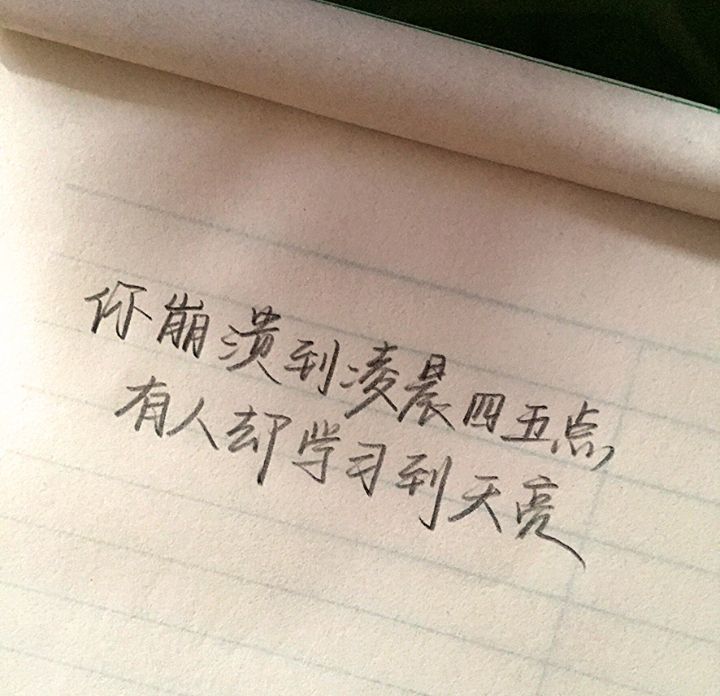 你崩溃到凌晨四五点,
有人却学习到天亮